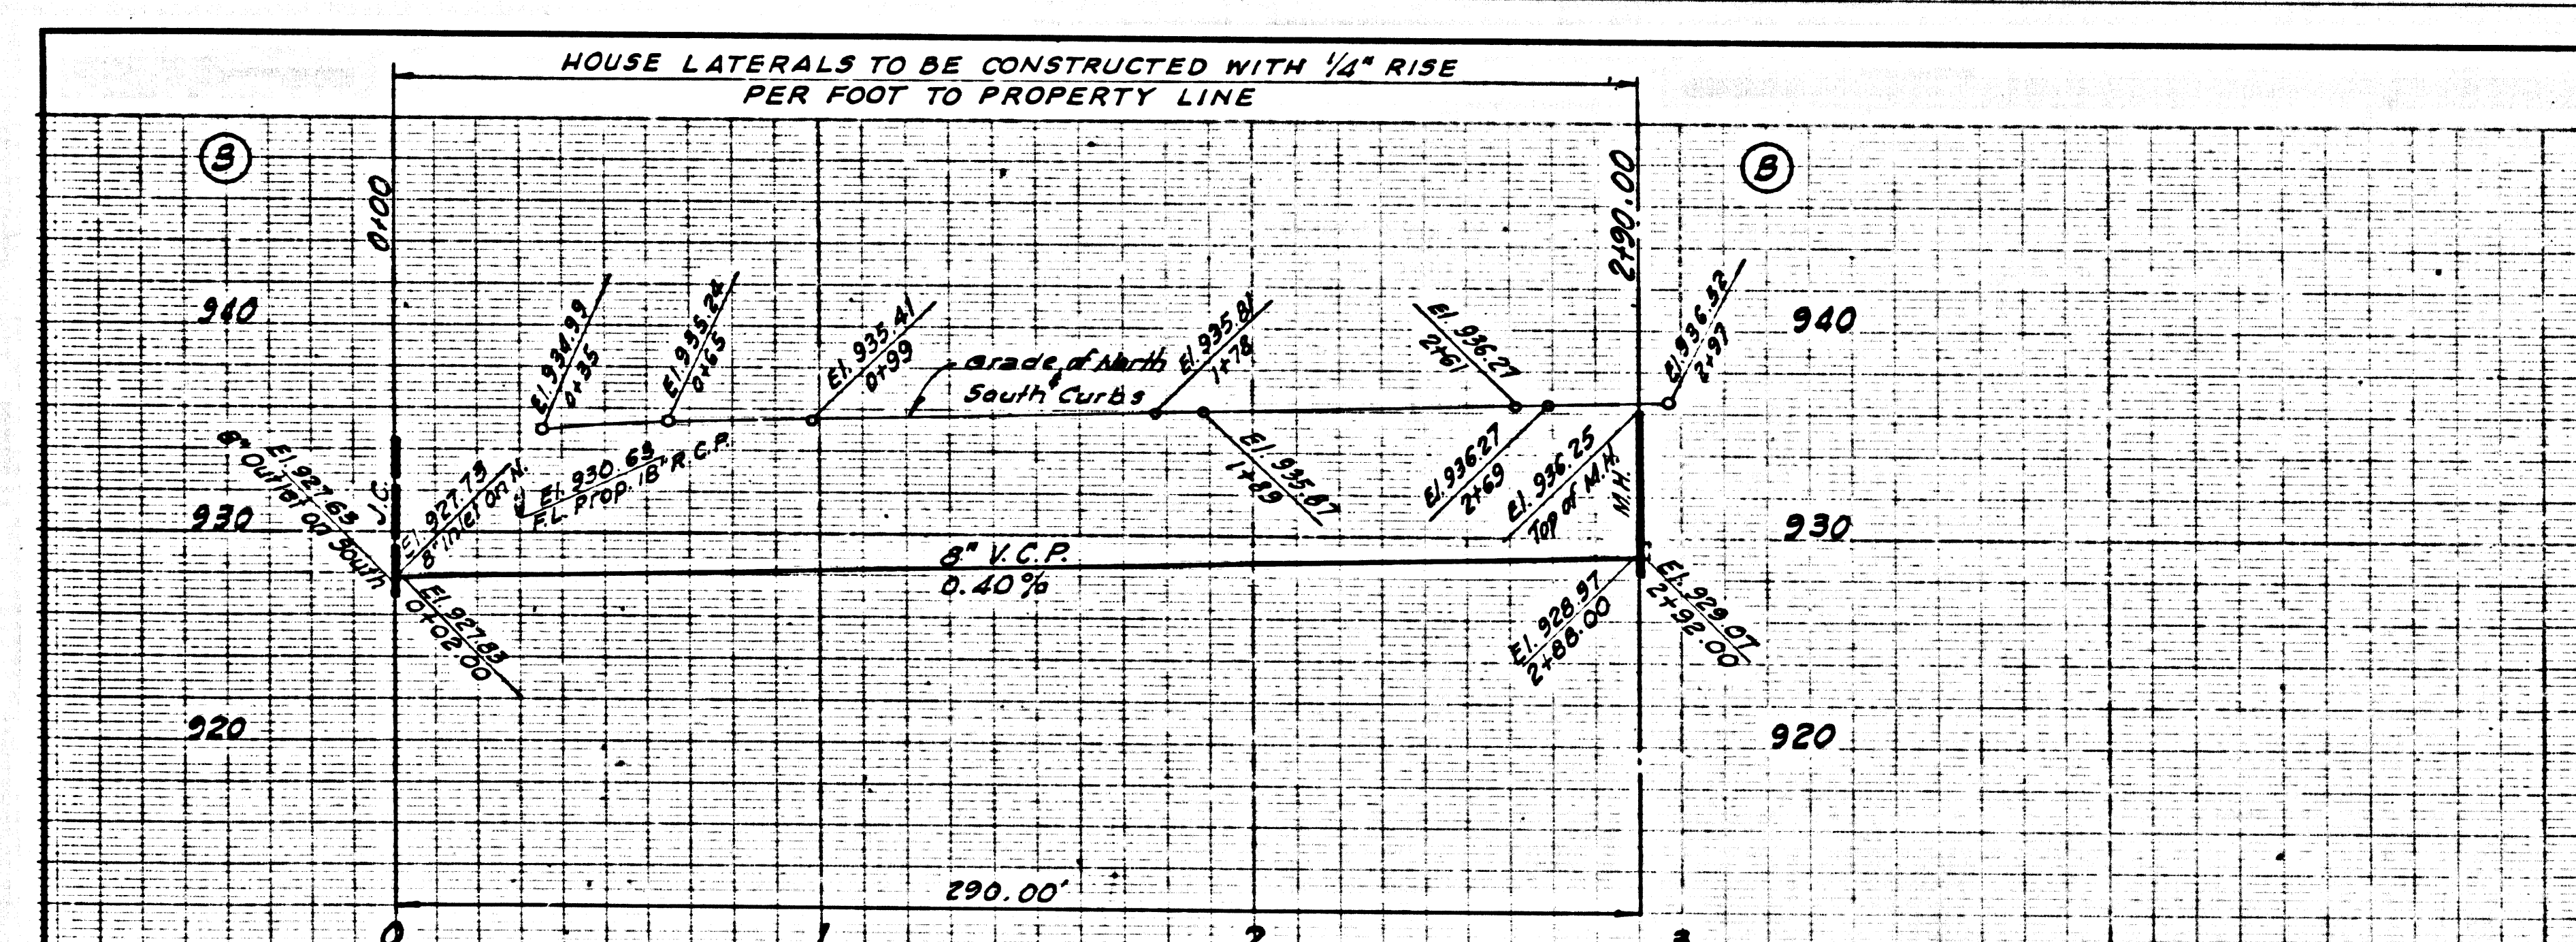 HOUSE LATERALS TO BE CONSTRUCTED WITH 1/4" RISE
PER FOOT TO PROPERTY LINE
B
B
0+00
2+90.00
940
940
El. 934.99
0+35
El. 935.24
0+65
El. 935.41
0+99
Grade of North
&
South Curbs
El. 935.81
1+78
El. 936.27
2+61
El. 936.52
2+97
El. 935.87
1+89
El. 936.27
2+69
El. 936.25
Top of M.H.
M.H.
930
930
El. 927.63
8" Outlet on South
J.C.
El. 927.73
8" Inlet on N.
El. 930.63
F.L. Prop. 18" R.C.P.
8" V.C.P.
0.40%
El. 927.83
0+02.00
El. 928.97
2+88.00
El. 929.07
2+92.00
920
920
290.00'
0
1
2
3